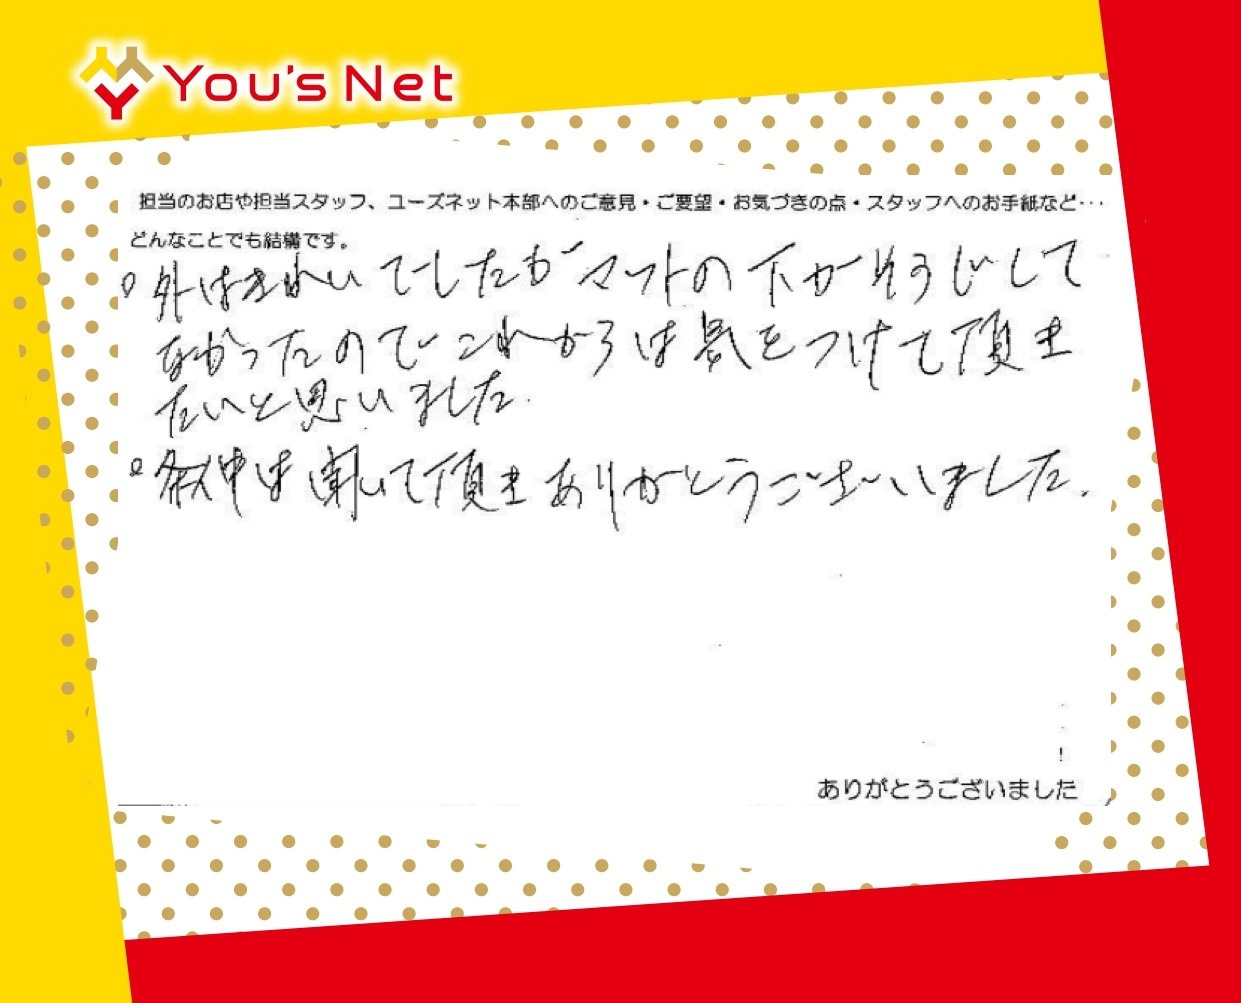 You's Net
担当のお店や担当スタッフ、ユーズネット本部へのご意見・ご要望・お気づきの点・スタッフへのお手紙など・・・
どんなことでも結構です。
外はきれいでしたがマットの下がそうじして
なかったのでこれからは気をつけて頂き
たいと思いました.
は 頂き ありがとうございました.
ありがとうございました